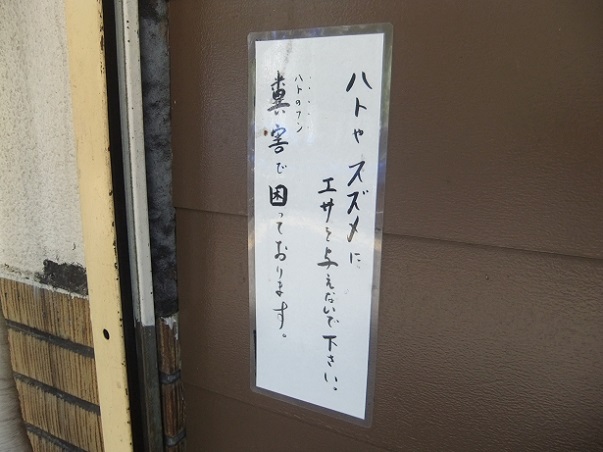 ハトや スズメに
エサを与えないで下さい。
ハトのフン
糞害で困っております。